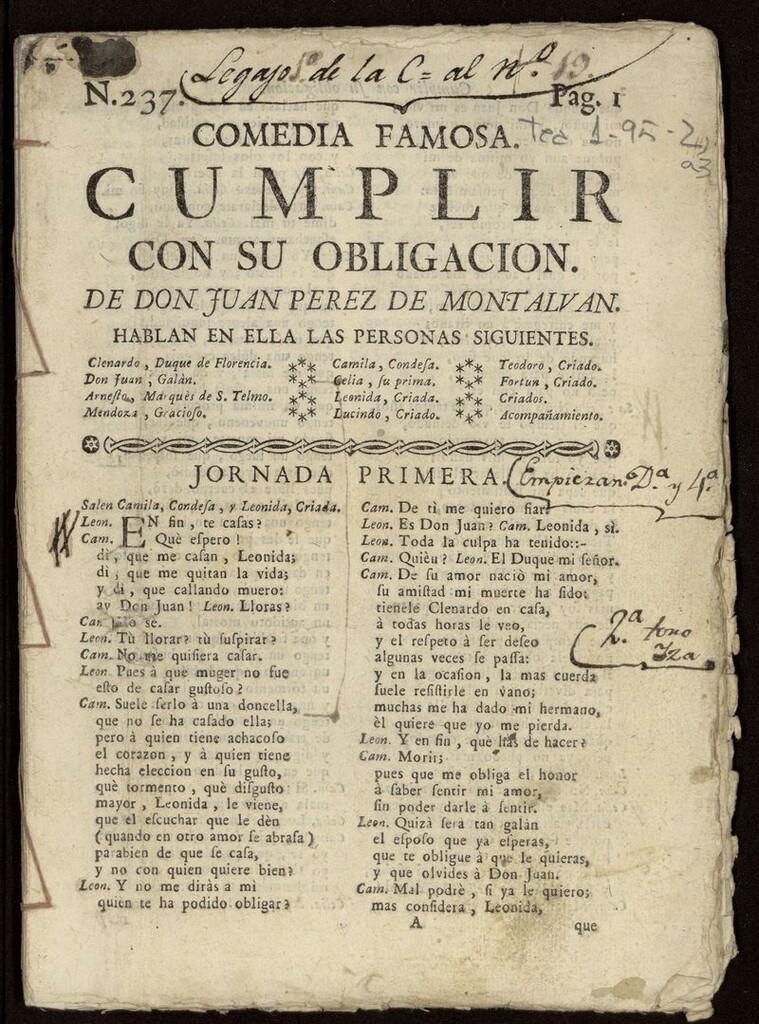 Legajo 1º de la C= al nº. 19.
N.237. Pag. 1
COMEDIA FAMOSA.
Tea 1-95-2,
a3
CUMPLIR
CON SU OBLIGACION.
DE DON JUAN PEREZ DE MONTALVAN.
HABLAN EN ELLA LAS PERSONAS SIGUIENTES.
Clenardo , Duque de Florencia. *** Camila, Condeſa. *** Teodoro, Criado.
Don Juan , Galàn. *** Celia , ſu prima. *** Fortun , Criado.
Arneſto, Marquès de S. Telmo. *** Leonida, Criada. *** Criados.
Mendoza , Gracioſo. *** Lucindo , Criado. *** Acompañamiento.
JORNADA PRIMERA.
Empiezan Dª y 4ª
Salen Camila, Condeſa , y Leonida, Criada.
Leon. EN fin , te caſas?
Cam. Què eſpero!
dì, que me caſan , Leonida;
di , que me quitan la vida;
y di , que callando muero:
ay Don Juan! Leon. Lloras?
Cam. No sè.
Leon. Tù llorar? tù ſuſpirar?
Cam. No me quiſiera caſar.
Leon. Pues à què muger no fue
eſto de caſar guſtoſo?
Cam. Suele ſerlo à una doncella,
que no ſe ha caſado ella;
pero à quien tiene achacoſo
el corazon , y à quien tiene
hecha eleccion en ſu guſto,
què tormento , què diſguſto
mayor , Leonida , le viene,
que el eſcuchar que le dèn
( quando en otro amor ſe abraſa )
parabien de que ſe caſa,
y no con quien quiere bien?
Leon. Y no me diràs à mì
quien te ha podido obligar?
Cam. De ti me quiero fiar.
Leon. Es Don Juan? Cam. Leonida , sì.
Leon. Toda la culpa ha tenido::-
Cam. Quièn? Leon. El Duque mi ſeñor.
Cam. De ſu amor naciò mi amor,
ſu amiſtad mi muerte ha ſido:
tienele Clenardo en caſa,
à todas horas le veo,
y el reſpeto à ſer deſeo
algunas veces ſe paſſa:
2.ª tono
Iza
y en la ocaſion , la mas cuerda
ſuele reſiſtirle en vano;
muchas me ha dado mi hermano,
èl quiere que yo me pierda.
Leon. Y en fin , què has de hacer?
Cam. Morir;
pues que me obliga el honor
à ſaber ſentir mi amor,
ſin poder darle à ſentir.
Leon. Quizà ſerà tan galàn
el eſpoſo que ya eſperas,
que te obligue à que le quieras,
y que olvides à Don Juan.
Cam. Mal podrè , ſi ya le quiero;
mas conſidera , Leonida,
A que